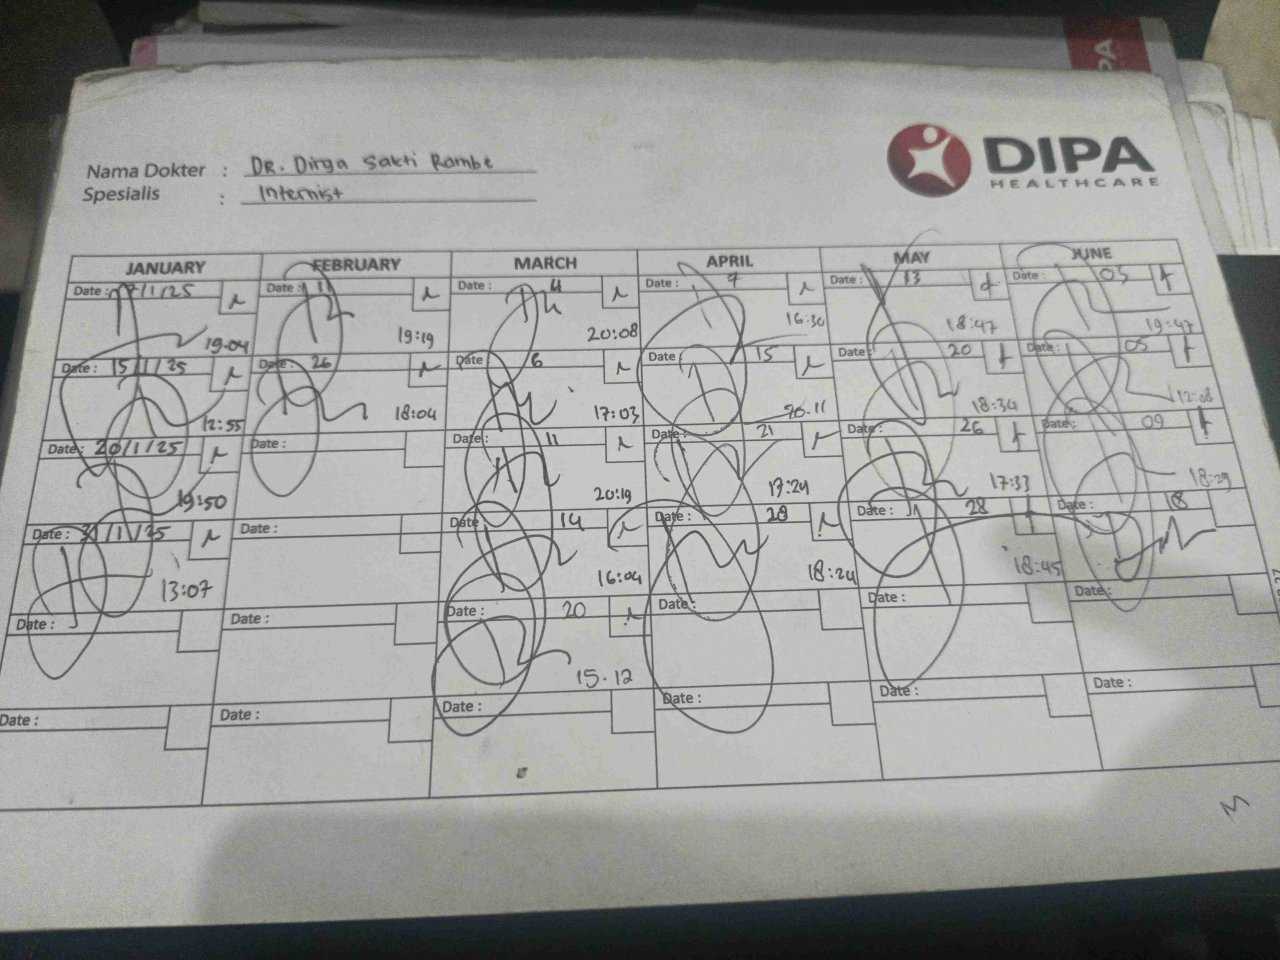 PA
DIPA
HEALTHCARE
Nama Dokter : DR. Dirga Sakti Rambe
Spesialis : Internist
JANUARY FEBRUARY MARCH APRIL MAY JUNE
Date : /1/25 Date : 11 Date : 4 Date : 7 Date : 13 Date : 03
19:04 19:19 20:08 16:30 18:47 19:47
Date : 15/1/25 Date : 26 Date 6 Date 15 Date : 20 Date : 05
12:55 18:04 17:03 20.11 18:34 12:08
Date : 20/1/25 Date : Date : 11 Date : 21 Date : 26 Date : 09
19:50 20:19 17:24 17:33 18:29
Date : 31/1/25 Date : Date : 14 Date : 28 Date : 28 Date : 18
13:07 16:04 18:24 18:45
Date : Date : Date : 20 Date : Date : Date :
15.12
Date : Date : Date : Date : Date : Date :
M